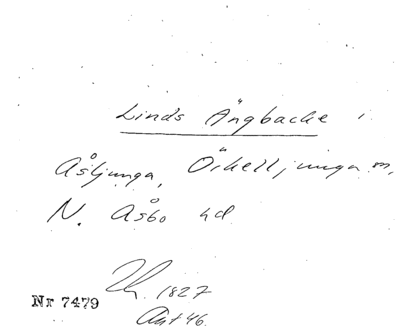 Linds Ängbacke i
Åsljunga, Örkelljunga sn,
N. Åsbo hd
1827
Nr 7479
Ant 46.